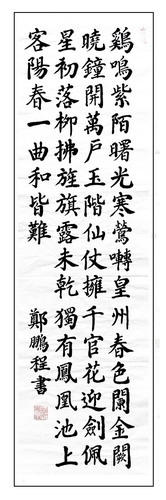 鷄鳴紫陌曙光寒鶯囀皇州春色闌金闕
曉鐘開萬户玉階仙仗擁千官花迎劍佩
星初落柳拂旌旗露未乾獨有鳳凰池上
客陽春一曲和皆難
鄭鵬程書